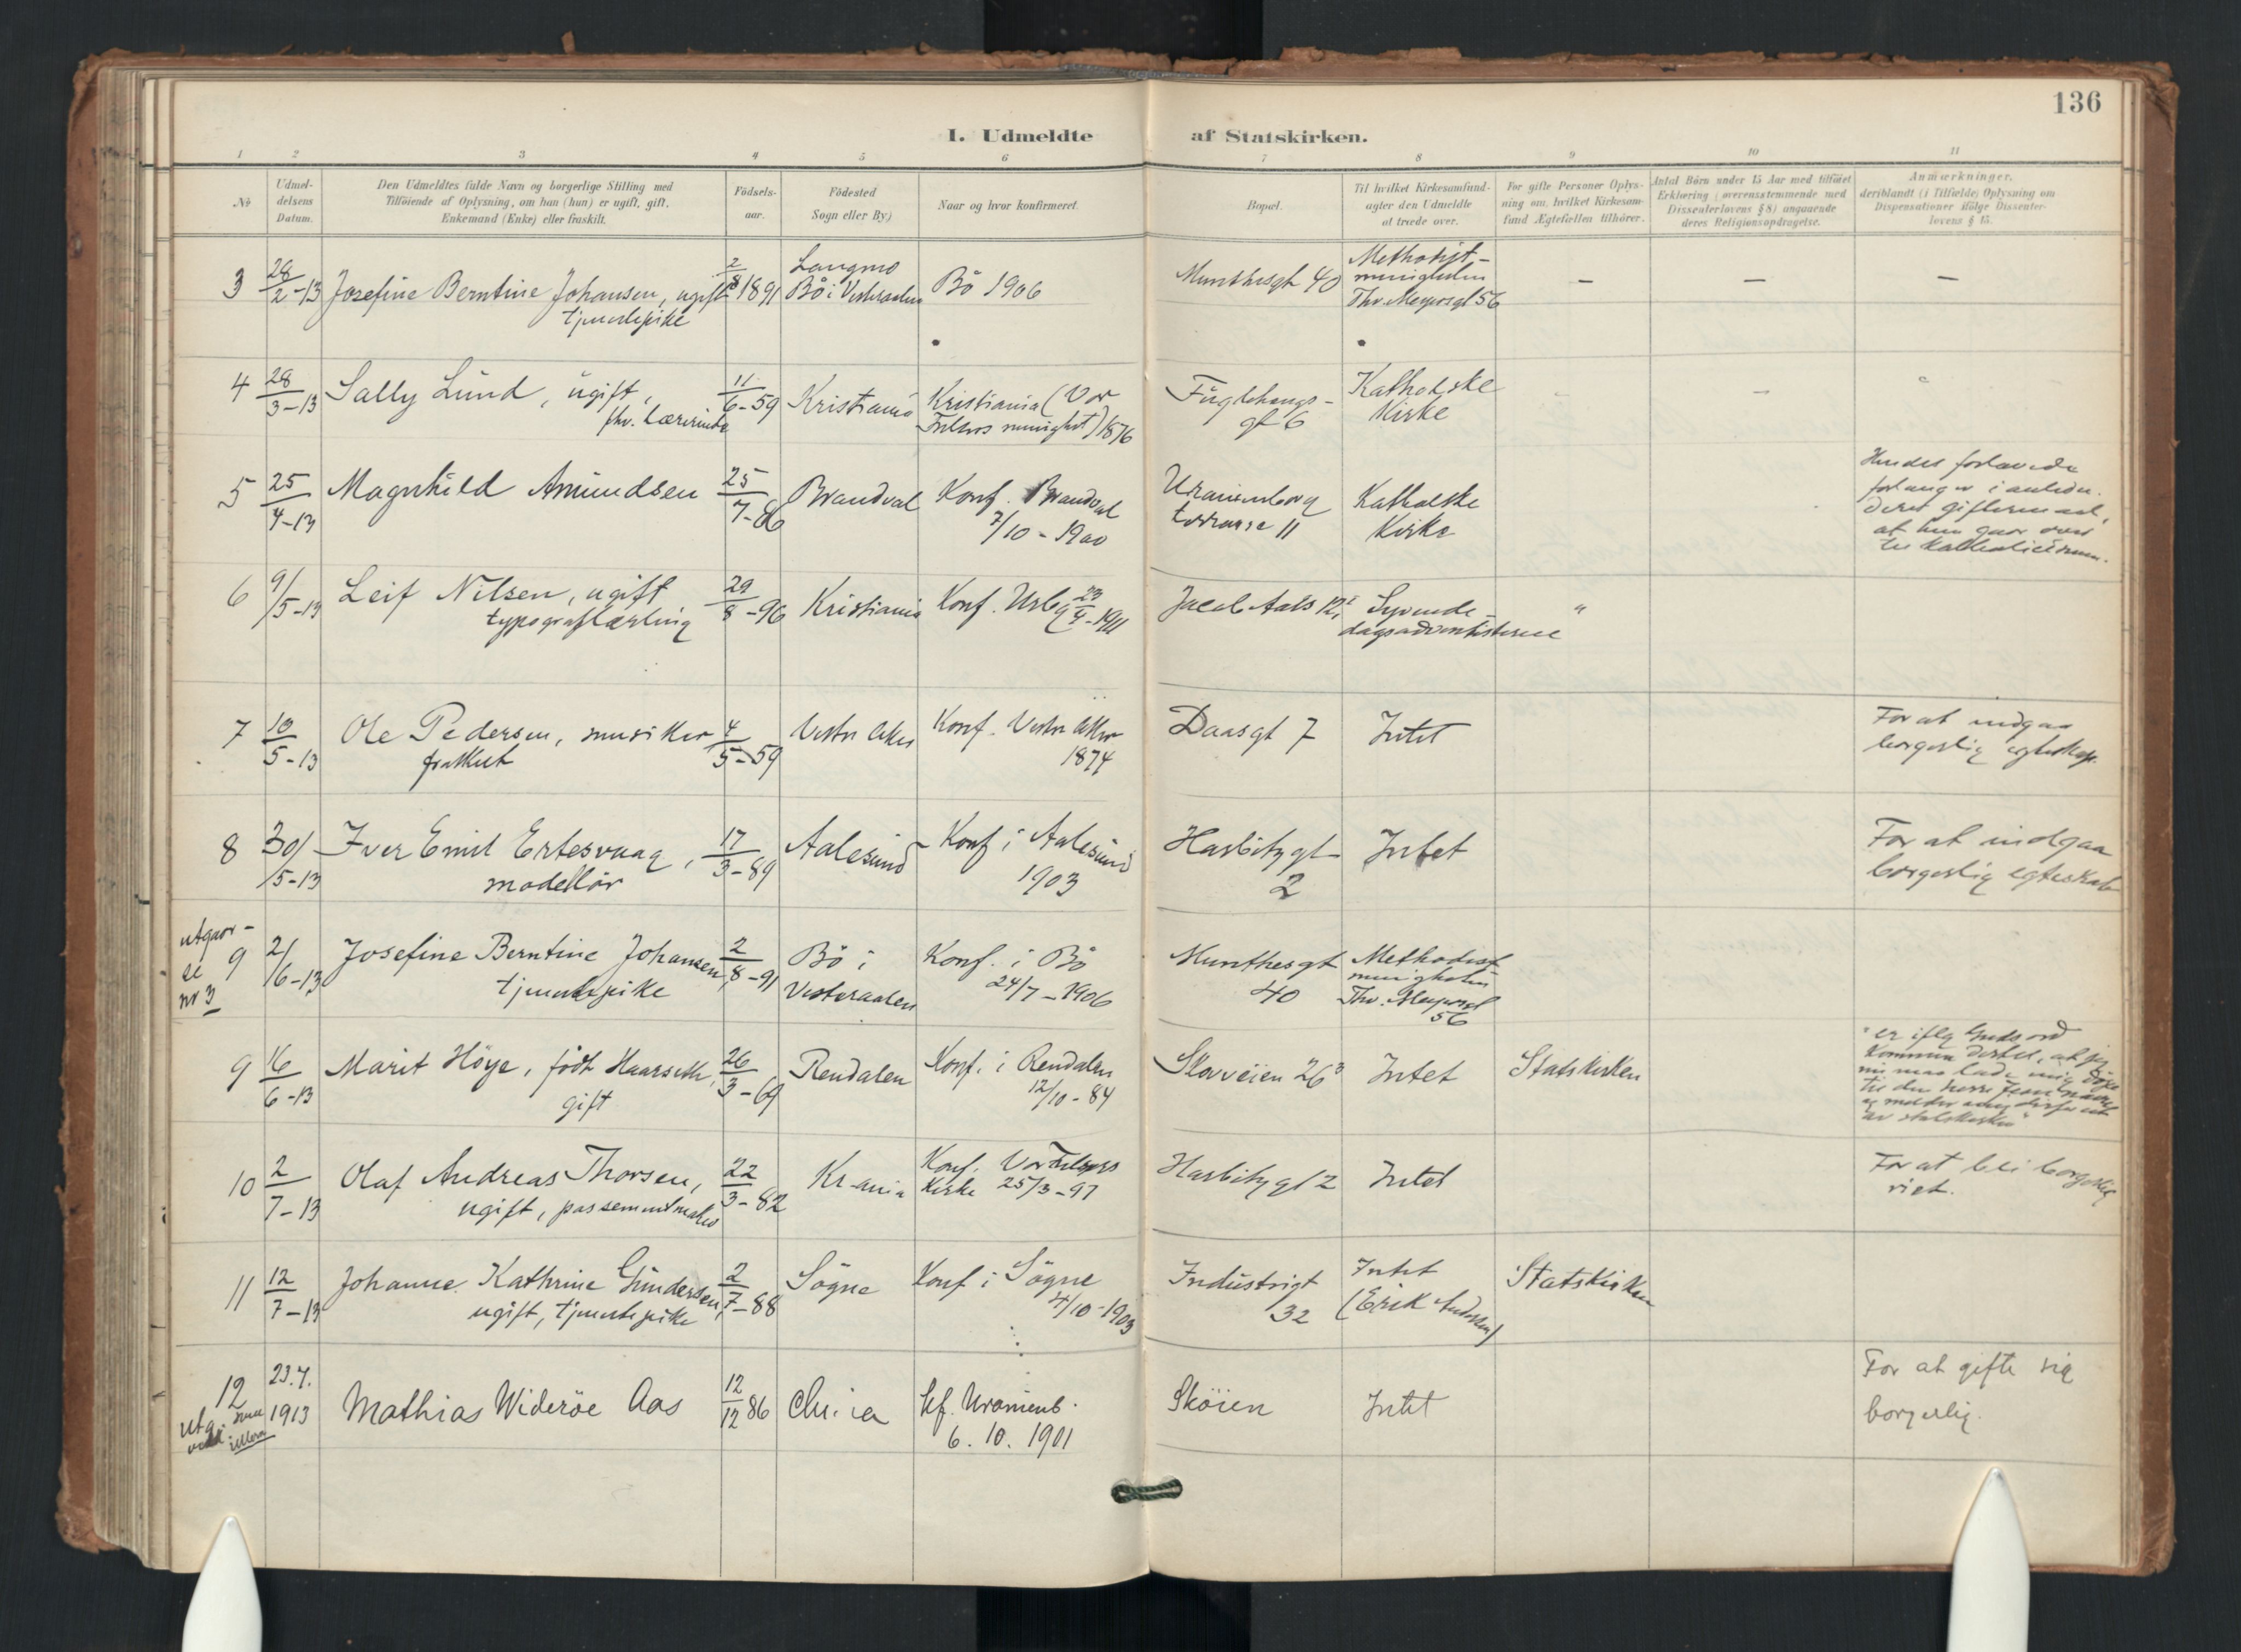 136
I. Udmeldte af Statskirken.
1 2 3 4 5 6 7 8 9 10 11
No
Udmel-
delsens
Datum.
Den Udmeldtes fulde Navn og borgerlige Stilling med
Tilföiende af Oplysning, om han (hun) er ugift, gift,
Enkemand (Enke) eller fraskilt.
Födsels-
aar.
Födested
Sogn eller By)
Naar og hvor konfirmeret.
Bopæl.
Til hvilket Kirkesamfund
agter den Udmeldte
at træde over.
For gifte Personer Oplys-
ning om, hvilket Kirkesam-
fund Ægtefællen tilhörer.
Antal Börn under 15 Aar med tilföiet
Erklæring (overensstemmende med
Dissenterlovens § 8) angaaende
deres Religionsopdragelse.
Anmærkninger,
deriblandt (i Tilfælde) Oplysning om
Dispensationer ifölge Dissenter-
lovens § 15.
3 28/2-13 Josefine Berntine Johansen, ugift
tjenestepike
2/8 1891
Langmo
Bö i Vesteraalen
Bö 1906
Munthesgt 40
Methodist-
menigheten
Thv. Meyersgt 56
— — —
4 28/3-13 Sally Lund, ugift,
fhv. Lærerinde
11/6-59
Kristiania
Kristiania (Vor
Frelsers menighet) 1876
Fuglehaugs-
gt 6
Katholske
Kirke
5 25/4-13 Magnhild Amundsen
25/7-86
Brandval
Konf. Brandval
7/10-1900
Uranienborg
terrasse 11
Katholske
Kirke
Hendes forlovede
forlanger i anledn.
deres giftermaal,
at hun gaar over
til katholicismen.
6 9/5-13 Leif Nilsen, ugift
typograflærling
29/8-96
Kristiania
Konf. Urbg 23/4-1911
Jacob Aals 12
Syvende-
dagsadventisterne
"
7 10/5-13 Ole Pedersen, musiker
fraskilt
4/5-59
Vestre Aker
Konf. Vestre Aker
1874
Daasgt 7
Intet
For at indgaa
borgerlig egteskap.
8 30/5-13 Iver Emil Ertesvaag,
modellör
17/3-89
Aalesund
Konf i Aalesund
1903
Harbitzgt
2
Intet
For at indgaa
borgerlig egteskab
utgaar-
se
nr 3
9 2/6-13 Josefine Berntine Johansen,
tjenestepike
2/8-91
Bö i
Vesteraalen
Konf. i Bö
24/7-1906
Munthesgt
40
Methodist
menigheten
Thv. Meyersgt
56
9 16/6-13 Marit Höye, födt Haarseth,
gift
26/3-69
Rendalen
Konf. i Rendalen
12/10-84
Skovveien 26³
Intet
Statskirken
"er iflg Guds ord
kommen dertil, at jeg
nu maa lade mig döpe
til den herre Jesu navn
og melder mig derfor ut
av statskirken"
10 2/7-13 Olaf Andreas Thorsen,
ugift, possementmaker
22/3-82
Kr-ania
Konf. Vor Frelsers
Kirke 25/3-97
Harbitzgt 2
Intet
For at bli borgerlig
viet.
11 12/7-13 Johanne Kathrine Gundersen,
ugift, tjenestepike
2/7-88
Sögne
Konf i Sögne
4/10-1903
Industrigt
32
Intet
(Erik Andersen)
Statskirken
12 23.7.
1913
Mathias Wideröe Aas
12/12 86
Chr.ia
kf. Uranienb.
6. 10. 1901
Sköien
Intet
For at gifte sig
borgerlig.